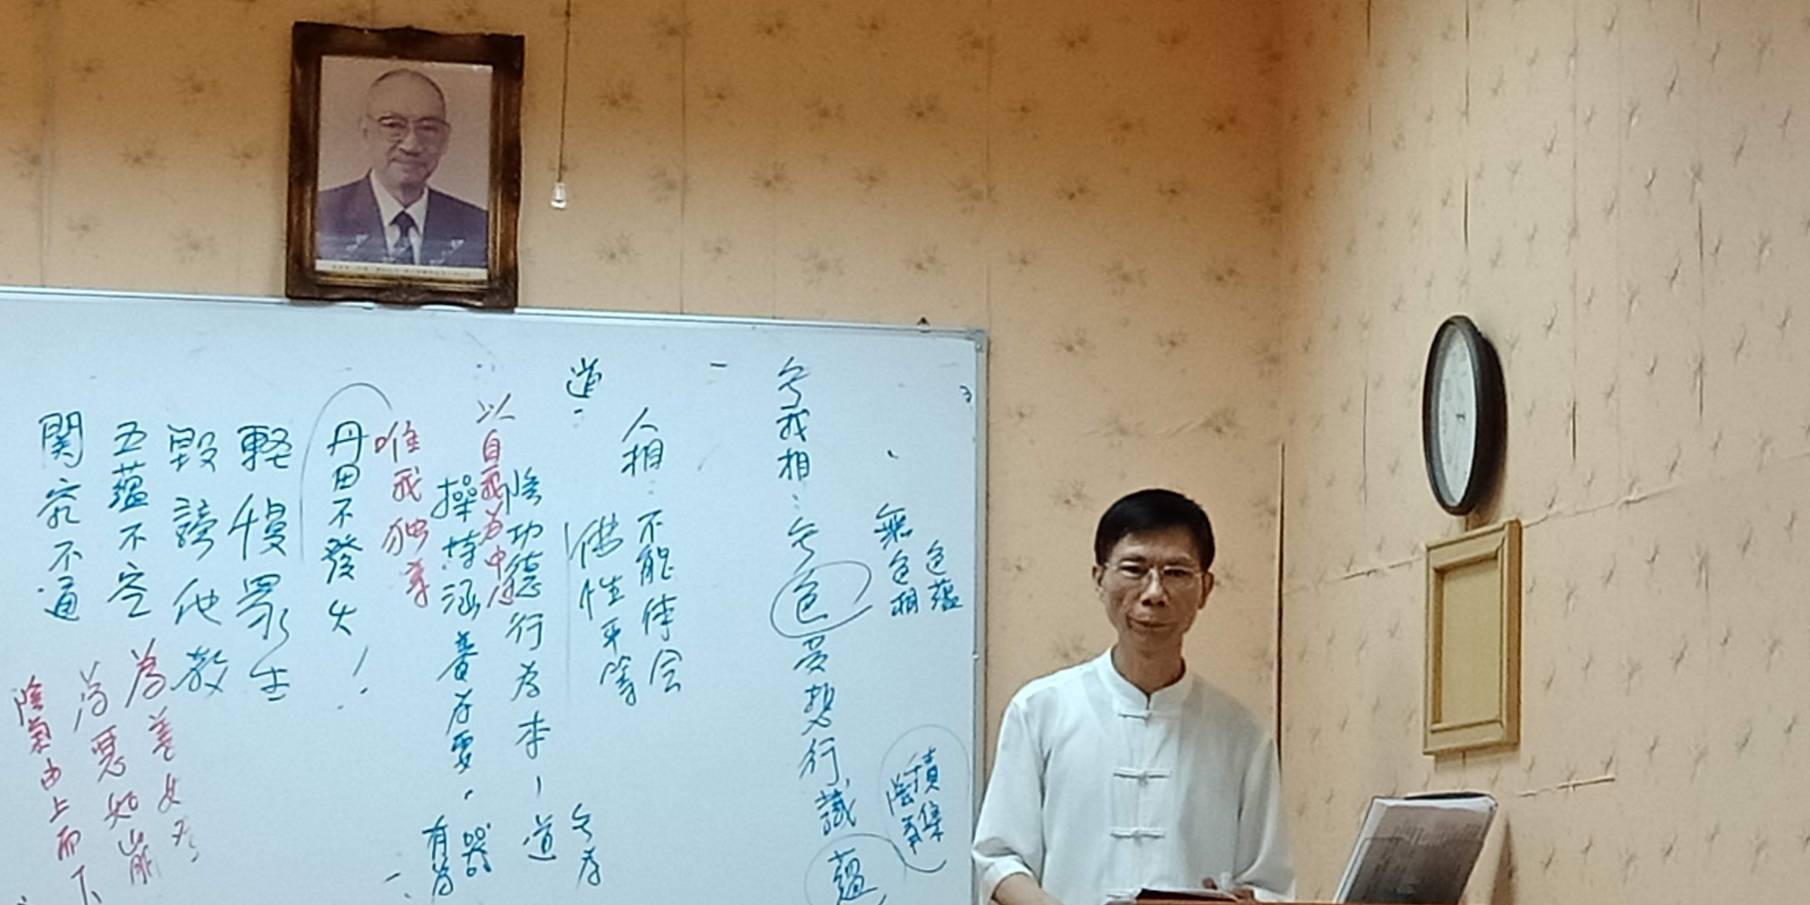 色蘊
無色相
無我相：無色受想行識
蘊
積集
陰氣
人相：不能体会
佛性平等
道：
陰功德行為本，道
無為
以自我為中心
操持涵養為要，器
有為
唯我獨尊
丹田不發火！
輕慢眾生
毀謗他教
五蘊不空
關竅不通
為善如登
為惡如崩
陰氣由上而下